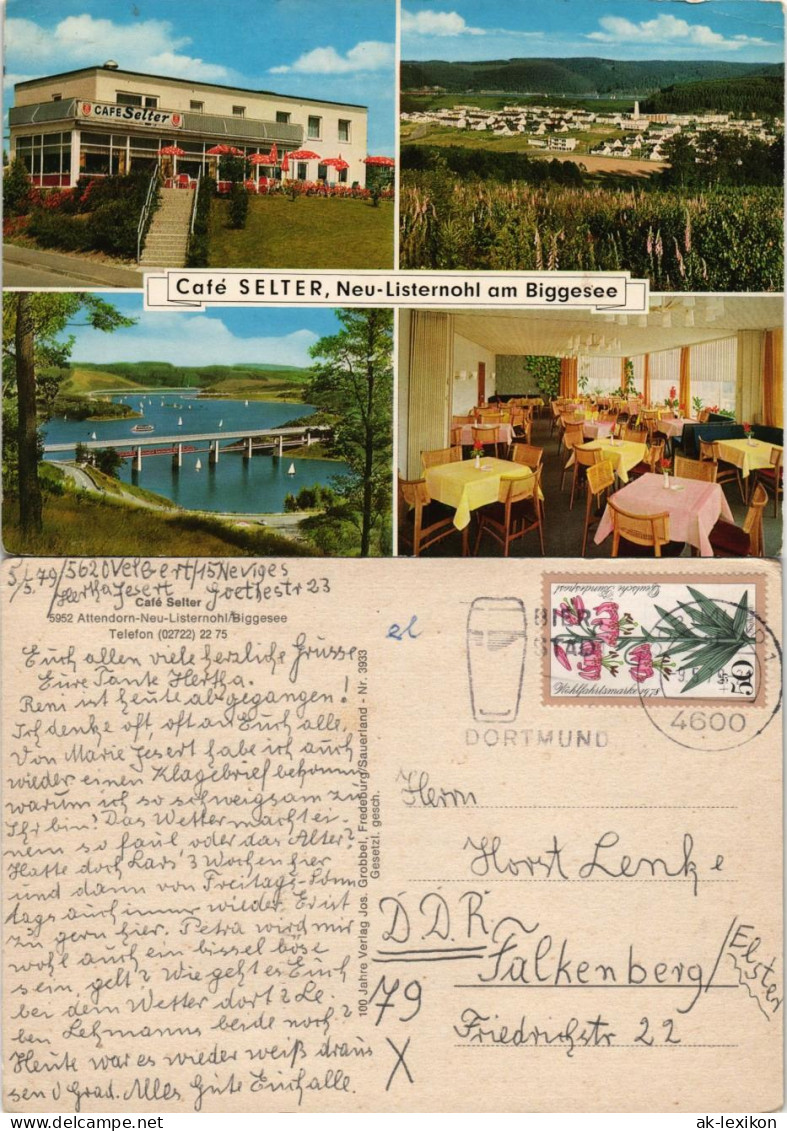 CAFE Selter
Café SELTER, Neu-Listernohl am Biggesee
5./5.79/5620 Velbert/15 Neviges
Hertha Jesert Goethestr 23
Café Selter
5952 Attendorn-Neu-Listernohl/Biggesee
Telefon (02722) 22 75
Euch allen viele herzliche Grüsse
Eure Tante Hertha.
Reni ist heute abgegangen!
Ich denke oft, oft an Euch alle,
Von Marie Jesert habe ich auch
wieder einen Klagebrief bekommen
warum ich so schweigsam zu
Ihr bin! Das Wetter macht ei-
nem so faul oder das Alter?
Hatte doch Lars' 3 Wochen hier
und dann von Freitags-Sonn
tags auch immer wieder. Er ist
zu gern hier. Petra wird mir
wohl auch ein bissel böse
sein, gelt? Wie geht es Euch
bei dem Wetter dort? Le
ben Lehmanns beide noch?
Heute war es wieder weiß draus
sen 0 Grad. Alles Gute Euch alle.
100 Jahre Verlag Jos. Grobbel, Fredeburg/Sauerland - Nr. 3933
Gesetzl. gesch.
BIER
STADT
DORTMUND
Deutsche Bundespost
Wohlfahrtsmarke
50
4600
Herrn
Horst Lenke
D.D.R.
79
X
Falkenberg/Elster
Friedrichstr 22
ak-lexikon